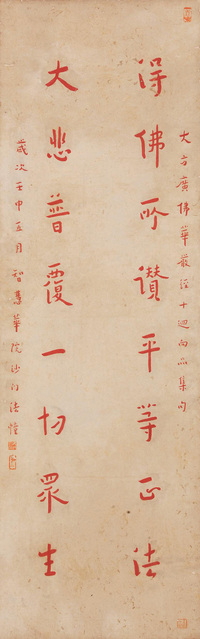 大方廣佛華嚴經十迴向品集句
得佛所讚平等正法
大悲普覆一切眾生
歲次壬申五月智慧華院沙門法幢